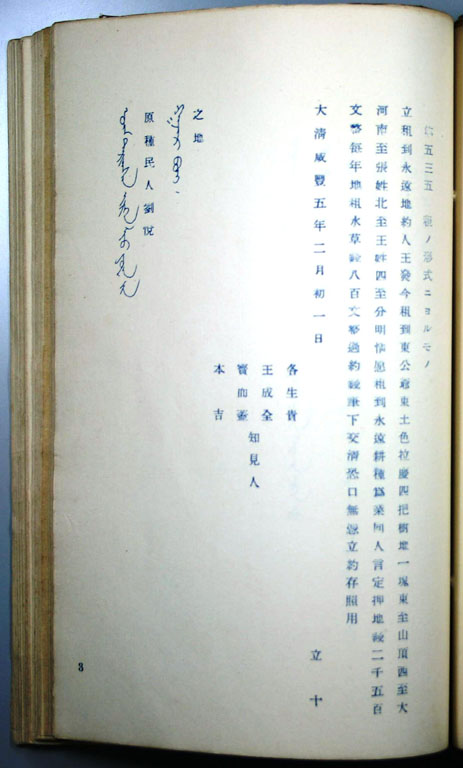 五三五 租ノ形式ニヨルモノ
立租到永遠地約人王發今租到東公爺東土色拉慶四把樹地一塊東至山頂西至大
河南至張姓北至王姓四至分明情愿租到永遠耕種爲業同人言定押地錢二千五百
文整每年地租水草錢八百文整過約錢筆下交清恐口無憑立約存照用
大清咸豐五年二月初一日 立十
各生貴
王成全
寶
本吉
知見人
之地
原種民人劉悅
3